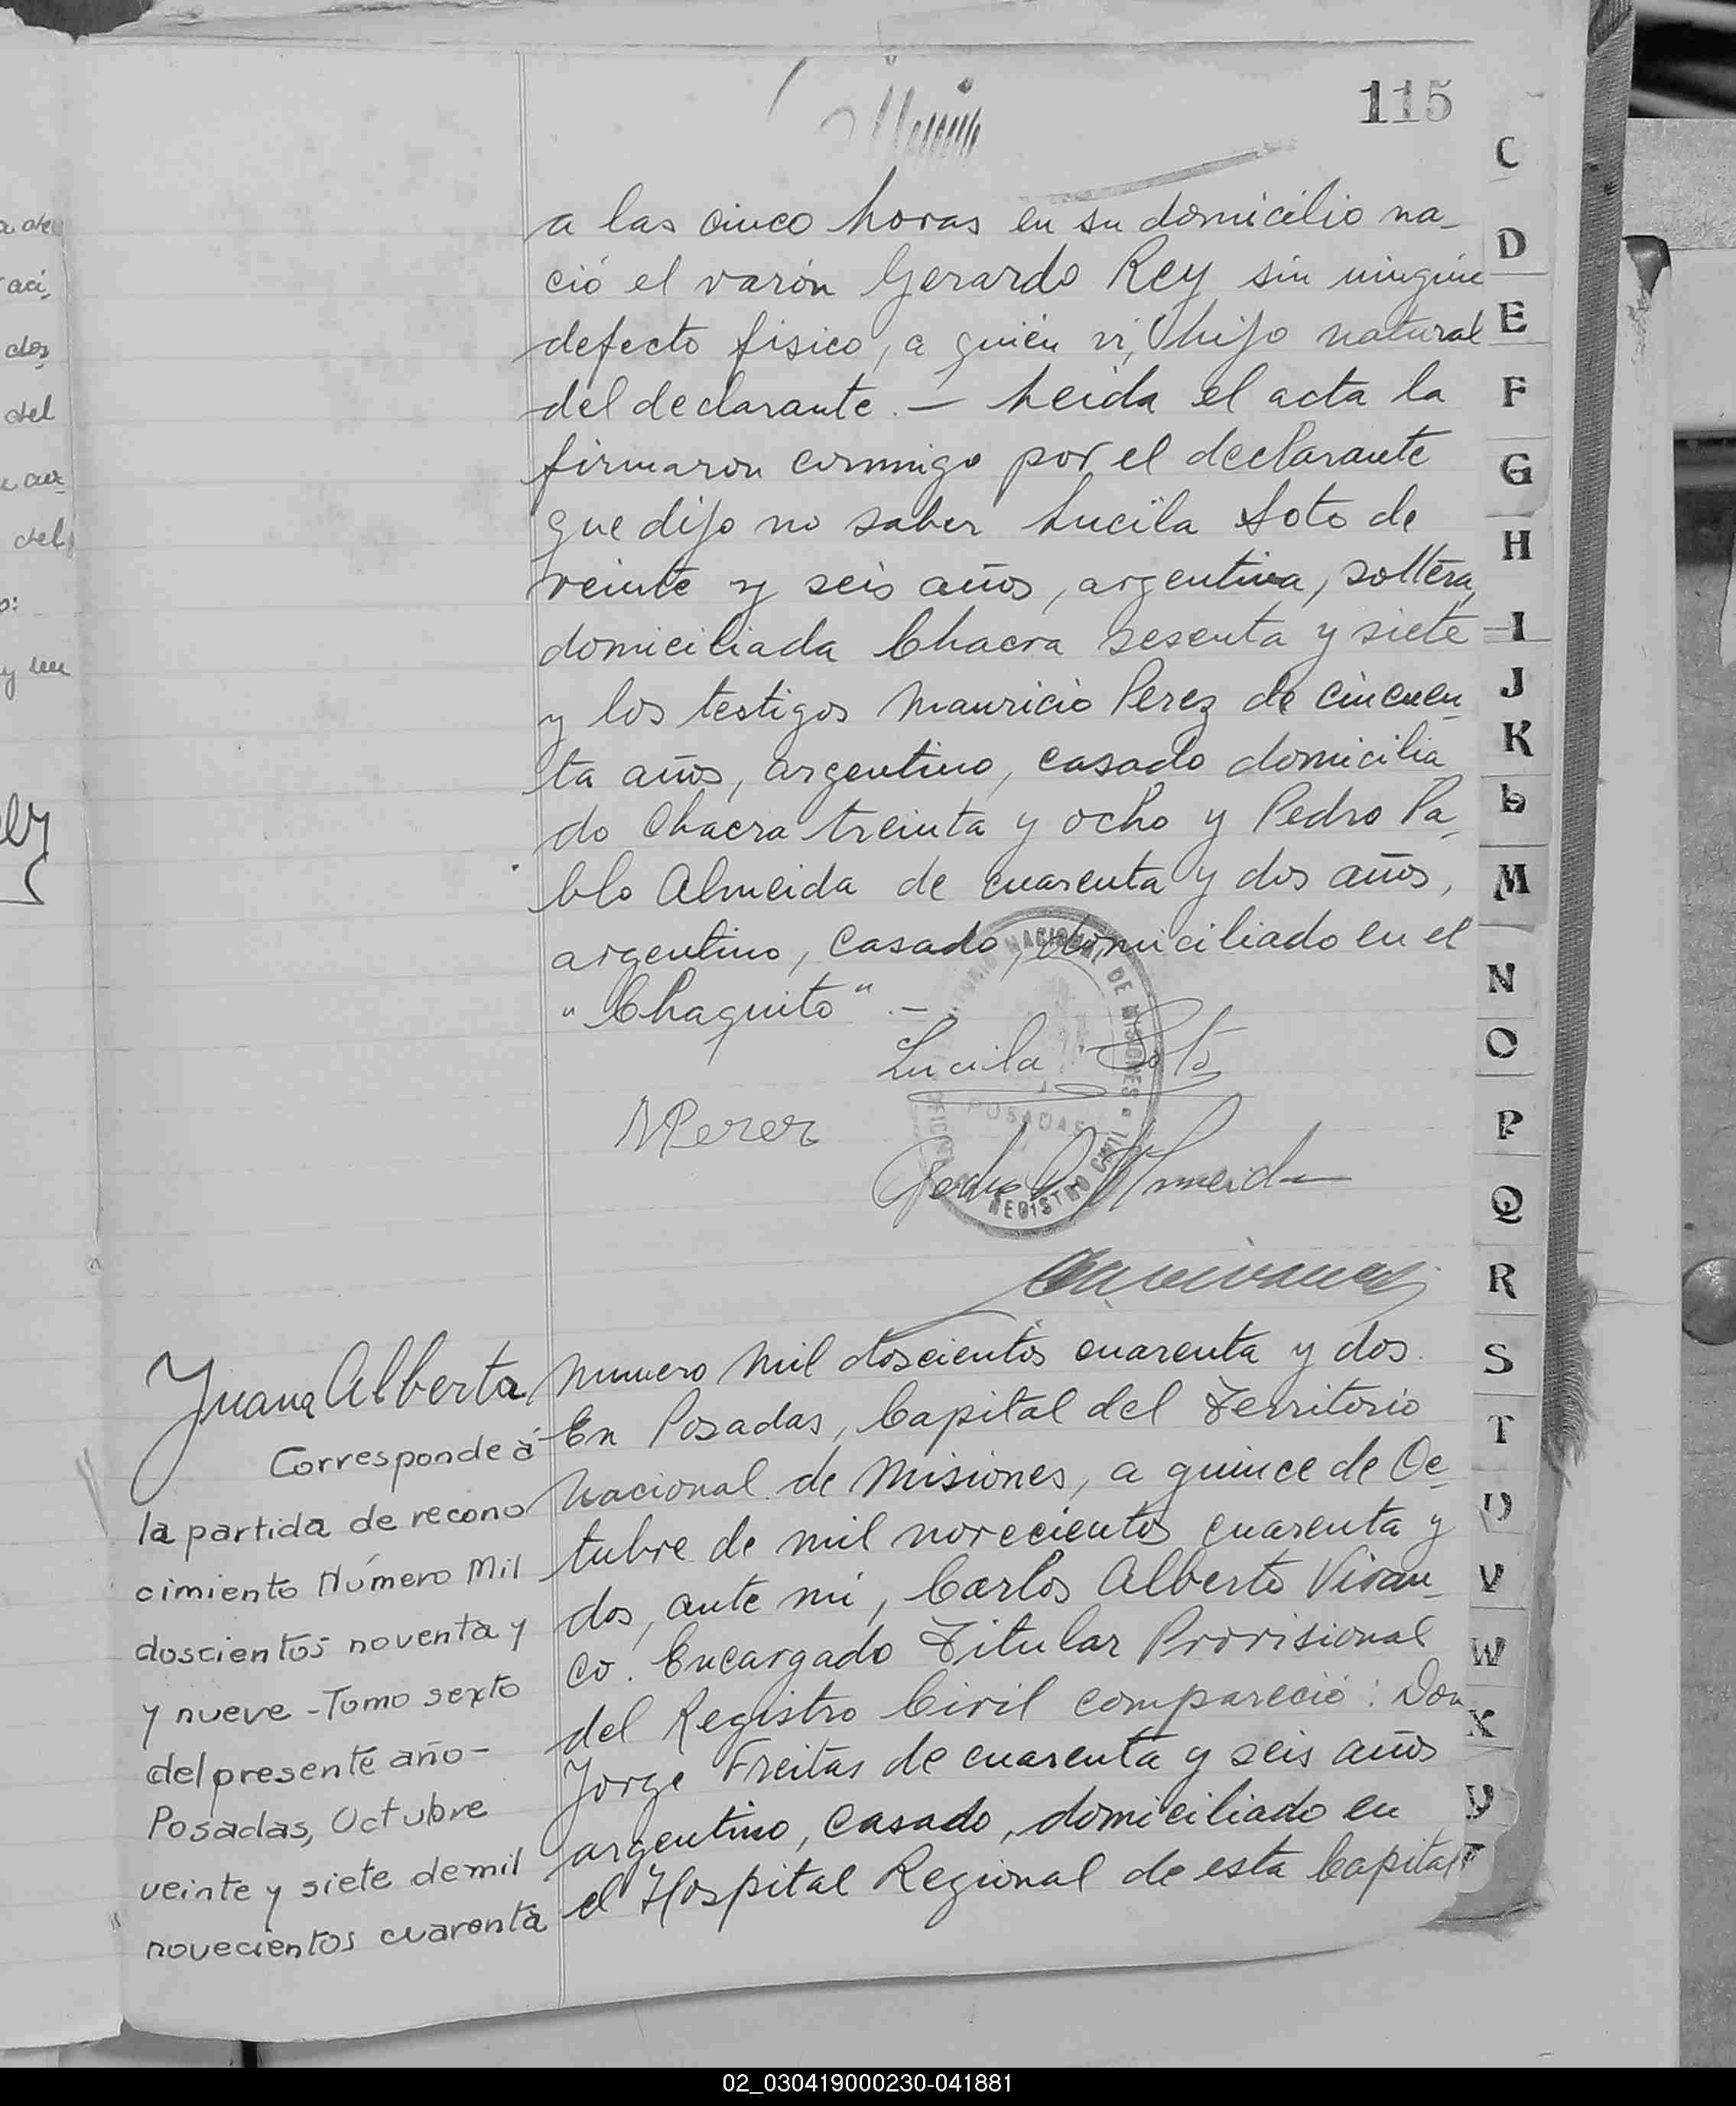 115
a las cinco horas en su domicilio na-
ció el varón Gerardo Rey sin ningún
defecto fisico, a quién ví, hijo natural
del declarante. - Leida el acta la
firmaron conmigo por el declarante
que dijo no saber Lucila Soto de
veinte y seis años, argentina, soltera,
domiciliada Chacra sesenta y siete
y los testigos Mauricio Perez de cincuen-
ta años, argentino, casado domicilia
do Chacra treinta y ocho y Pedro Pa-
blo Almeida de cuarenta y dos años,
argentino, casado, domiciliado en el
"Chaquito" . -
Lucila Soto
MPerez
Pedro P. Almeida
NACIONAL DE MISIONES
POSADAS
OFICINA REGISTRO CIVIL
Juana Alberta
Corresponde á
la partida de recono
cimiento Número Mil
doscientos noventa y
y nueve - Tomo sexto
del presente año -
Posadas, Octubre
veinte y siete de mil
novecientos cuarenta
Numero Mil doscientos cuarenta y dos.
En Posadas, Capital del Territorio
Nacional de Misiones, a quince de Oc-
tubre de mil novecientos cuarenta y
dos, ante mi, Carlos Alberto Vivan-
co. Encargado Titular Provisional
del Registro Civil compareció: Don
Jorge Freitas de cuarenta y seis años
argentino, casado, domiciliado en
el Hospital Regional de esta Capital
C
D
E
F
G
H
I
J
K
L
M
N
O
P
Q
R
S
T
U
V
W
X
Y
02_030419000230-041881